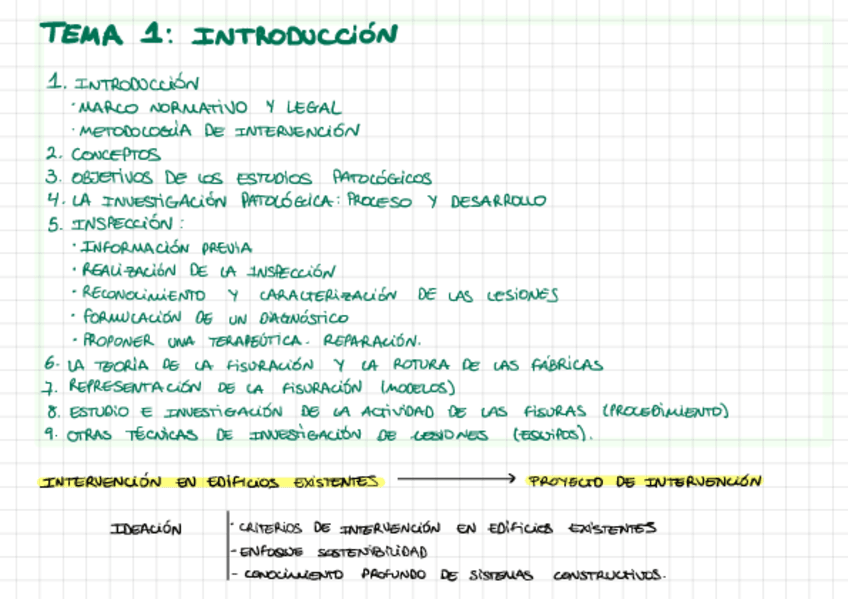 TEMA 1: INTRODUCCIÓN
1. INTRODUCCIÓN
· MARCO NORMATIVO Y LEGAL
· METODOLOGÍA DE INTERVENCIÓN
2. CONCEPTOS
3. OBJETIVOS DE LOS ESTUDIOS PATOLÓGICOS
4. LA INVESTIGACIÓN PATOLÓGICA: PROCESO Y DESARROLLO
5. INSPECCIÓN:
· INFORMACIÓN PREVIA
· REALIZACIÓN DE LA INSPECCIÓN
· RECONOCIMIENTO Y CARACTERIZACIÓN DE LAS LESIONES
· FORMULACIÓN DE UN DIAGNÓSTICO
· PROPONER UNA TERAPEÚTICA. REPARACIÓN.
6. LA TEORÍA DE LA FISURACIÓN Y LA ROTURA DE LAS FÁBRICAS
7. REPRESENTACIÓN DE LA FISURACIÓN (MODELOS)
8. ESTUDIO E INVESTIGACIÓN DE LA ACTIVIDAD DE LAS FISURAS (PROCEDIMIENTO)
9. OTRAS TÉCNICAS DE INVESTIGACIÓN DE LESIONES (EQUIPOS).
INTERVENCIÓN EN EDIFICIOS EXISTENTES → PROYECTO DE INTERVENCIÓN
IDEACIÓN
· CRITERIOS DE INTERVENCIÓN EN EDIFICIOS EXISTENTES
- ENFOQUE SOSTENIBILIDAD
- CONOCIMIENTO PROFUNDO DE SISTEMAS CONSTRUCTIVOS.